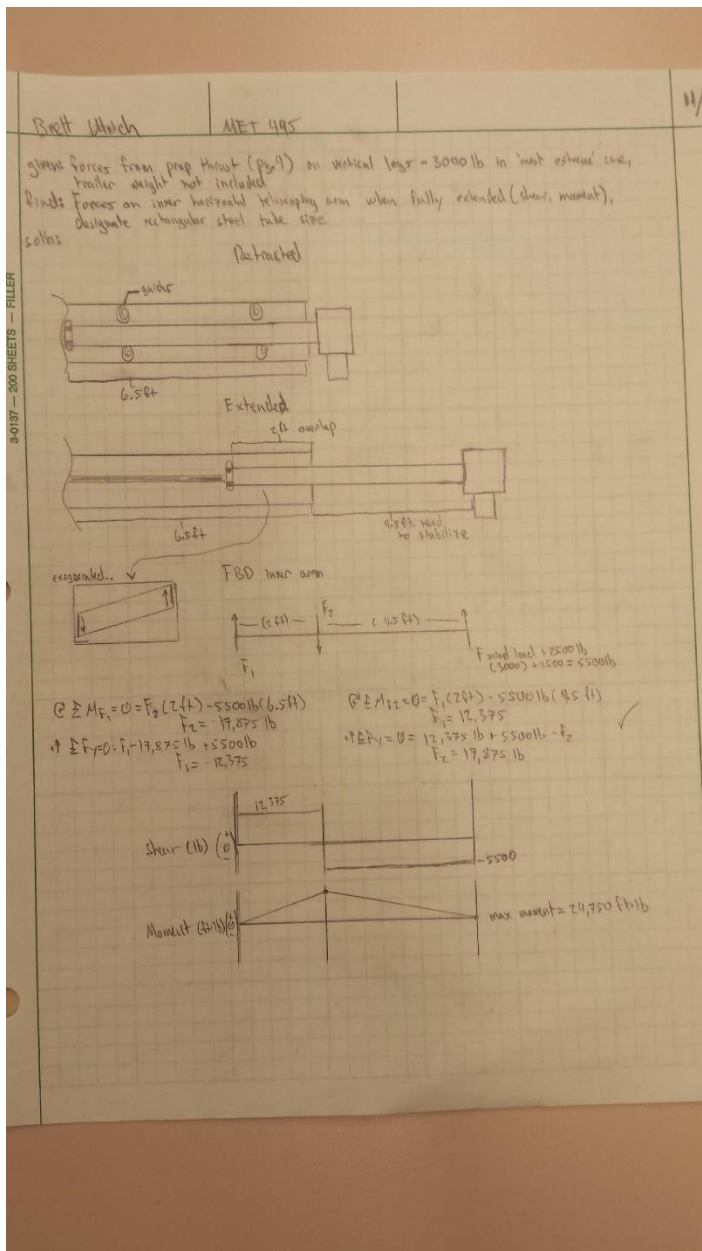 Brett Ulrich MET 495 11/
given: forces from prop thrust (pg. 9) on vertical legs - 3000 lb in 'most extreme' case,
trailer weight not included
find: Forces on inner horizontal telescoping arm when fully extended (shear, moment),
designate rectangular steel tube size
soln:
3-0137 — 200 SHEETS — FILLER
Retracted
guides
6.5ft
Extended
2ft overlap
6.5ft
4.5ft need
to stabilize
exaggerated..
FBD inner arm
F2
(2ft) (4.5ft)
F1
F wind load + 2500 lb
(3000) + 2500 = 5500 lb
ΣMF1=0=F2(2ft)-5500lb(6.5ft)
F2=-17,875 lb
+↑ΣFy=0=F1-17,875 lb+5500lb
F1=-12,375
ΣMF2=0=F1(2ft)-5500lb(4.5ft)
F1=12,375
+↑ΣFy=0=12,375 lb+5500lb-F2
F2=17,875 lb
12,375
Shear (lb)
-5500
Moment (ft·lb)
max moment=24,750 ft·lb